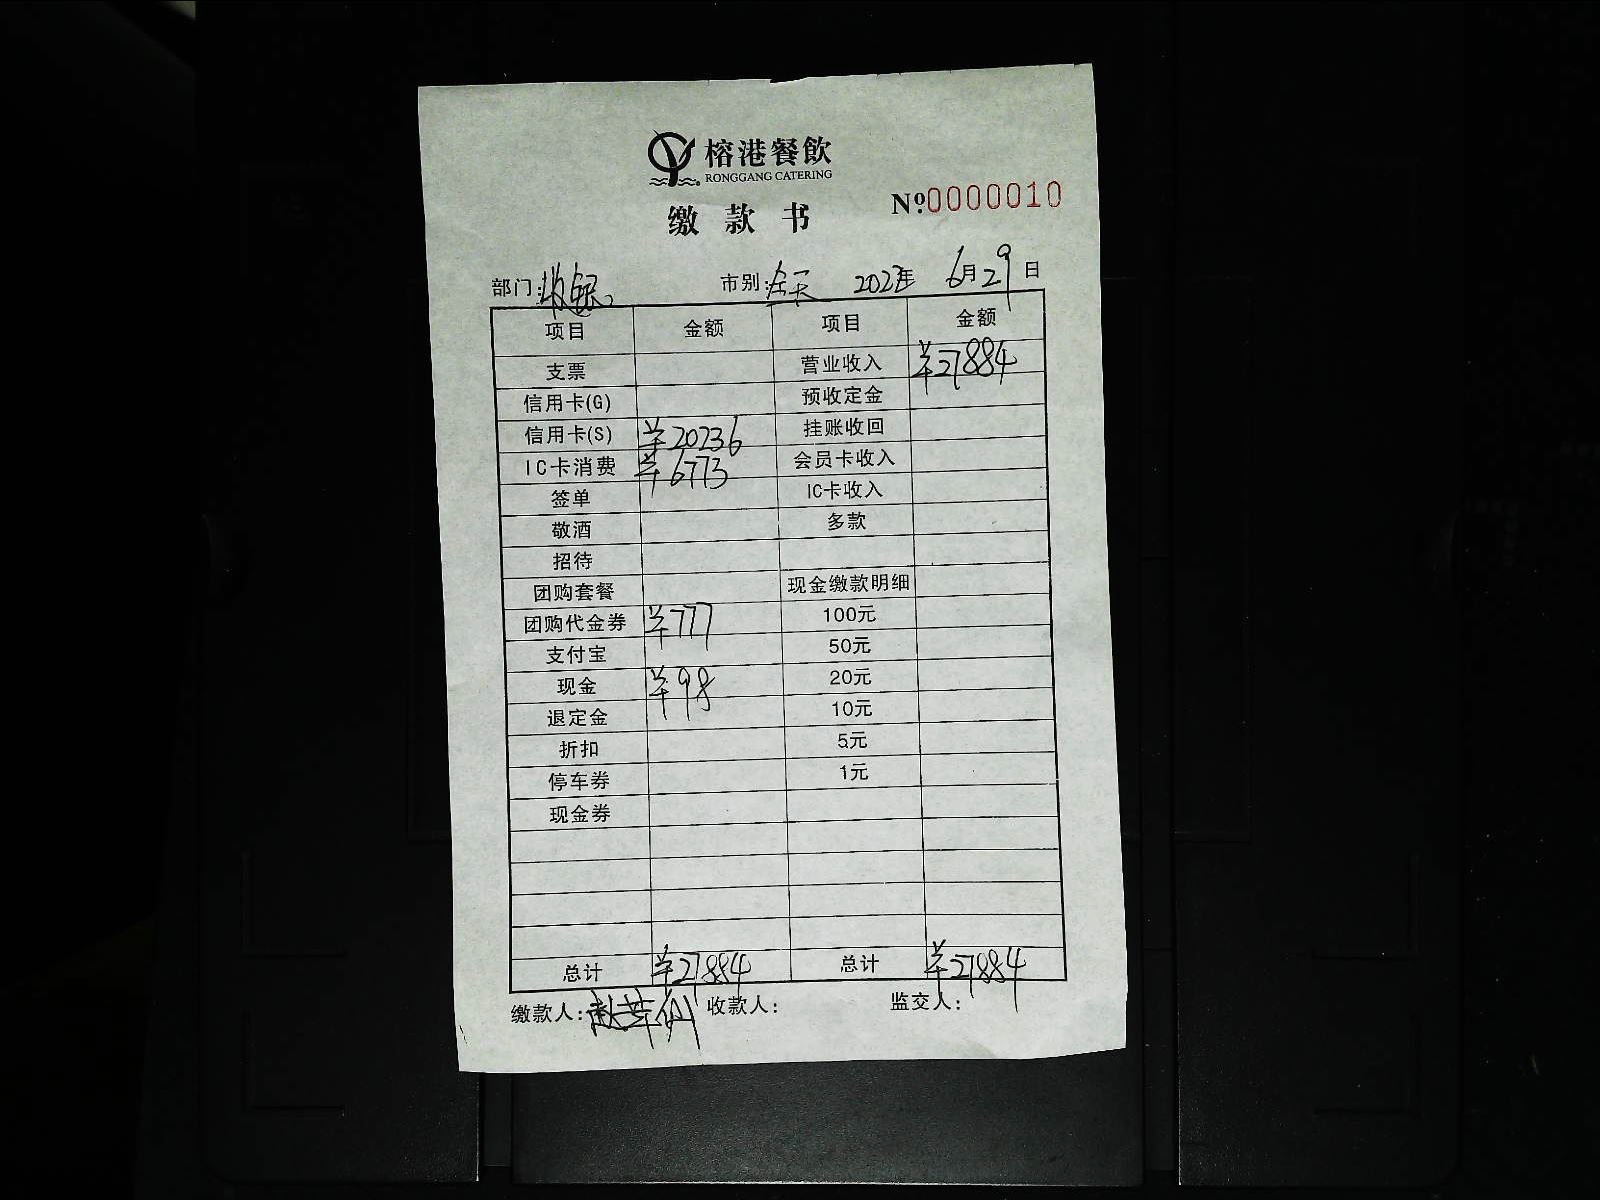 榕港餐飲
RONGGANG CATERING
缴款书 №:0000010
部门:收银 市别:全天 2022年 6月29日
项目 金额 项目 金额
支票 营业收入 ¥27884
信用卡(G) 预收定金
信用卡(S) ¥20236 挂账收回
IC卡消费 ¥6773 会员卡收入
签单 IC卡收入
敬酒 多款
招待
团购套餐 现金缴款明细
团购代金券 ¥777 100元
支付宝 50元
现金 ¥98 20元
退定金 10元
折扣 5元
停车券 1元
现金券
总计 ¥27884 总计 ¥27884
缴款人: 收款人: 监交人: